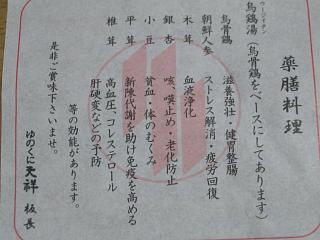 薬膳料理
ウージイタン
烏鶏湯(烏骨鶏をベースにしてあります)
烏骨鶏 滋養強壮・健胃整腸
朝鮮人参 ストレス解消・疲労回復
木茸 血液浄化
銀杏 咳、喘止め・老化防止
小豆 貧血・体のむくみ
平茸 新陳代謝を助け免疫を高める
椎茸 高血圧、コレステロール
肝硬変などの予防
等の効能があります。
是非ご賞味下さいませ。
ゆのくに天祥 板長